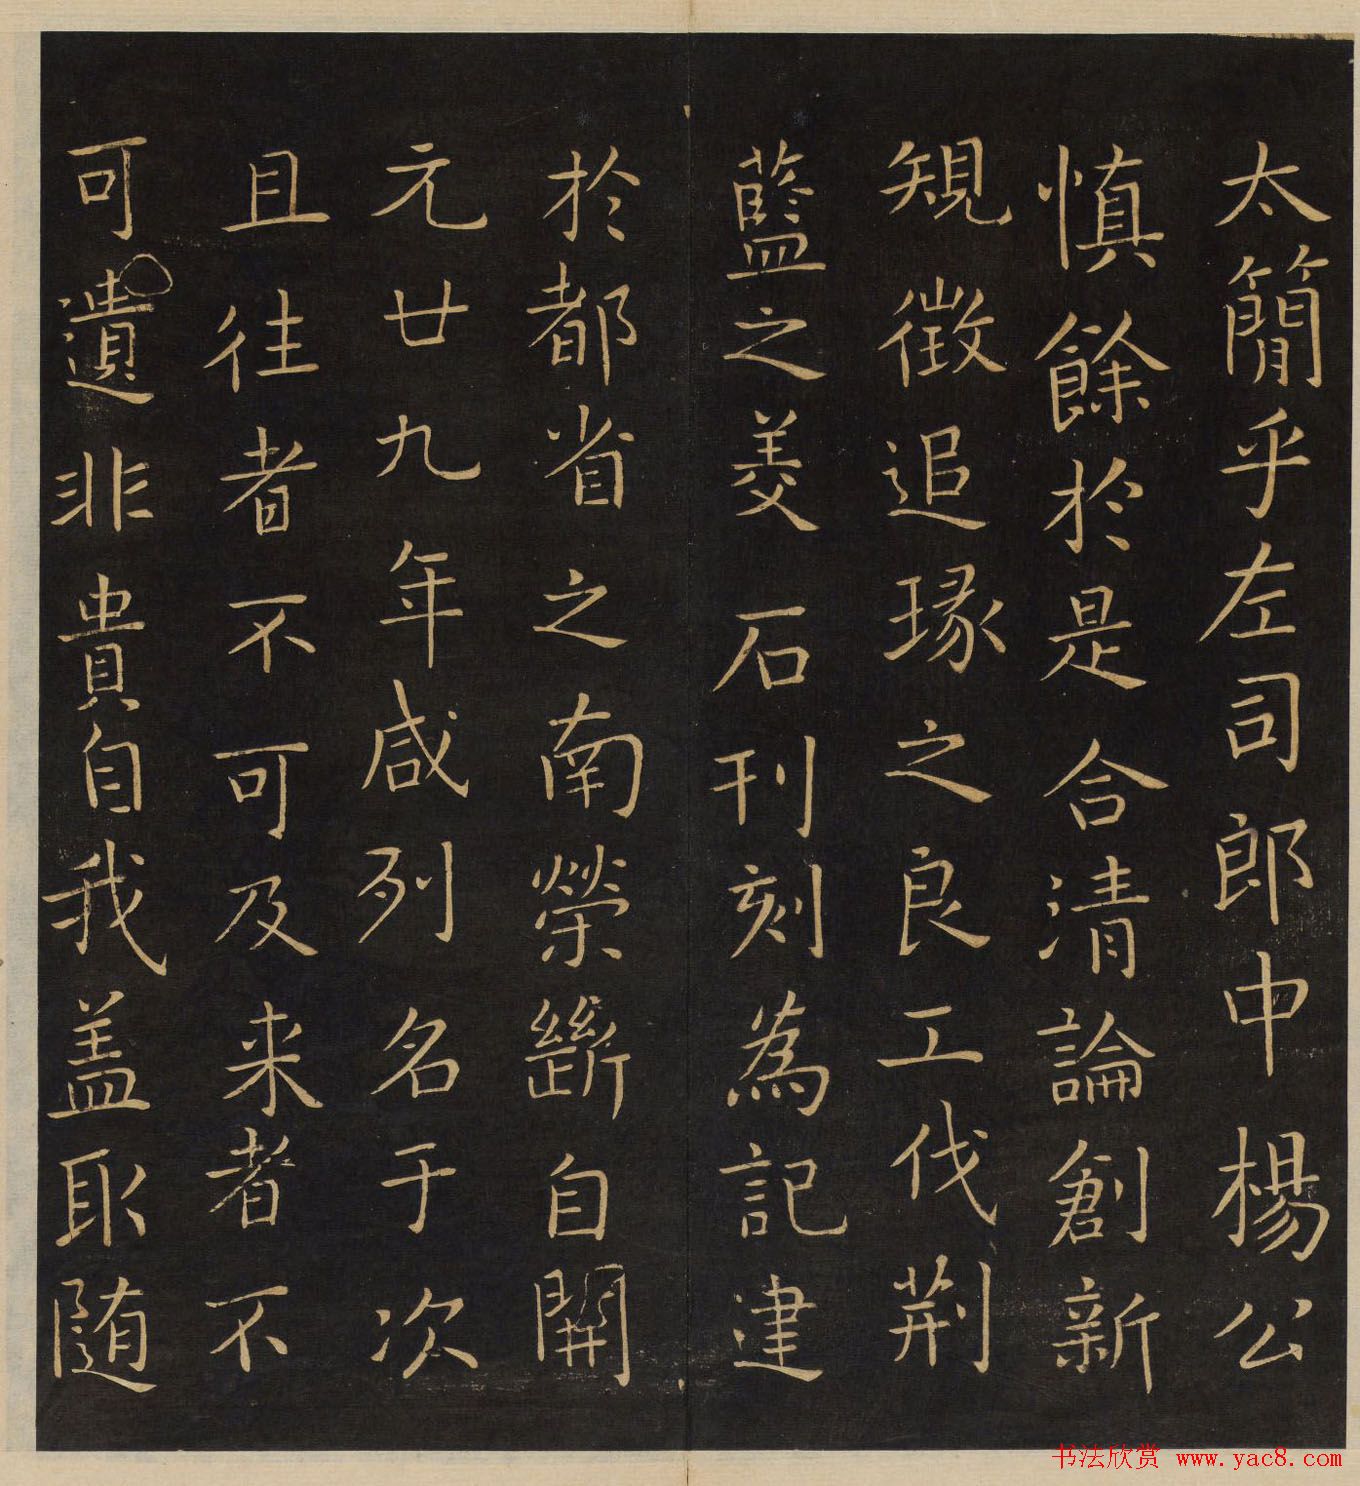 太簡乎左司郎中楊公
慎餘於是合清論創新
規徵追琢之良工伐荆
藍之美石刊刻為記建
於都省之南榮斵自開
元廿九年咸列名于次
且往者不可及来者不
可遺非貴自我盖取随
书法欣赏 www.yac8.com